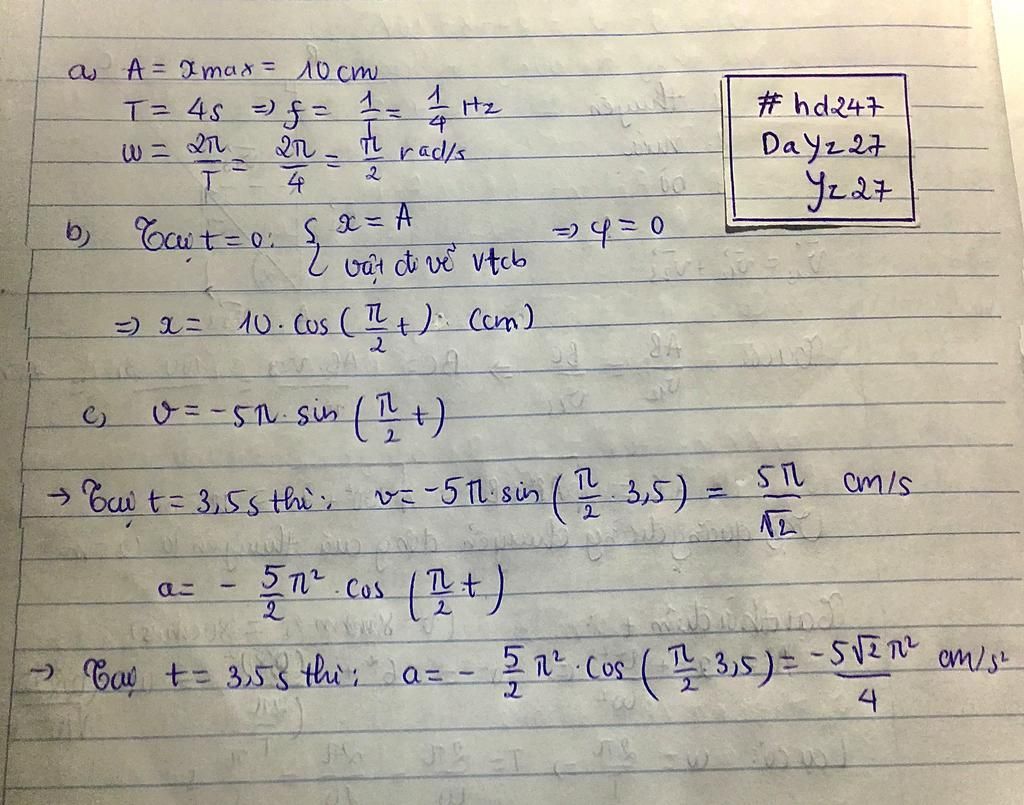 a, A = xmax = 10 cm
T = 4s => f = 1/T = 1/4 Hz
w = 2π/T = 2π/4 = π/2 rad/s
# hd247
DaYz27
Yz27
b, Tại t = 0: { x = A
vật đi về vtcb => φ = 0
=> x = 10 . cos ( π/2 t ) . (cm)
c, v = -5π . sin ( π/2 t )
→ Tại t = 3,5s thì: v = -5π . sin ( π/2 . 3,5 ) = 5π/√2 cm/s
a = - 5/2 π² . cos ( π/2 t )
→ Tại t = 3,5s thì: a = - 5/2 π² . cos ( π/2 . 3,5 ) = -5√2 π²/4 cm/s²